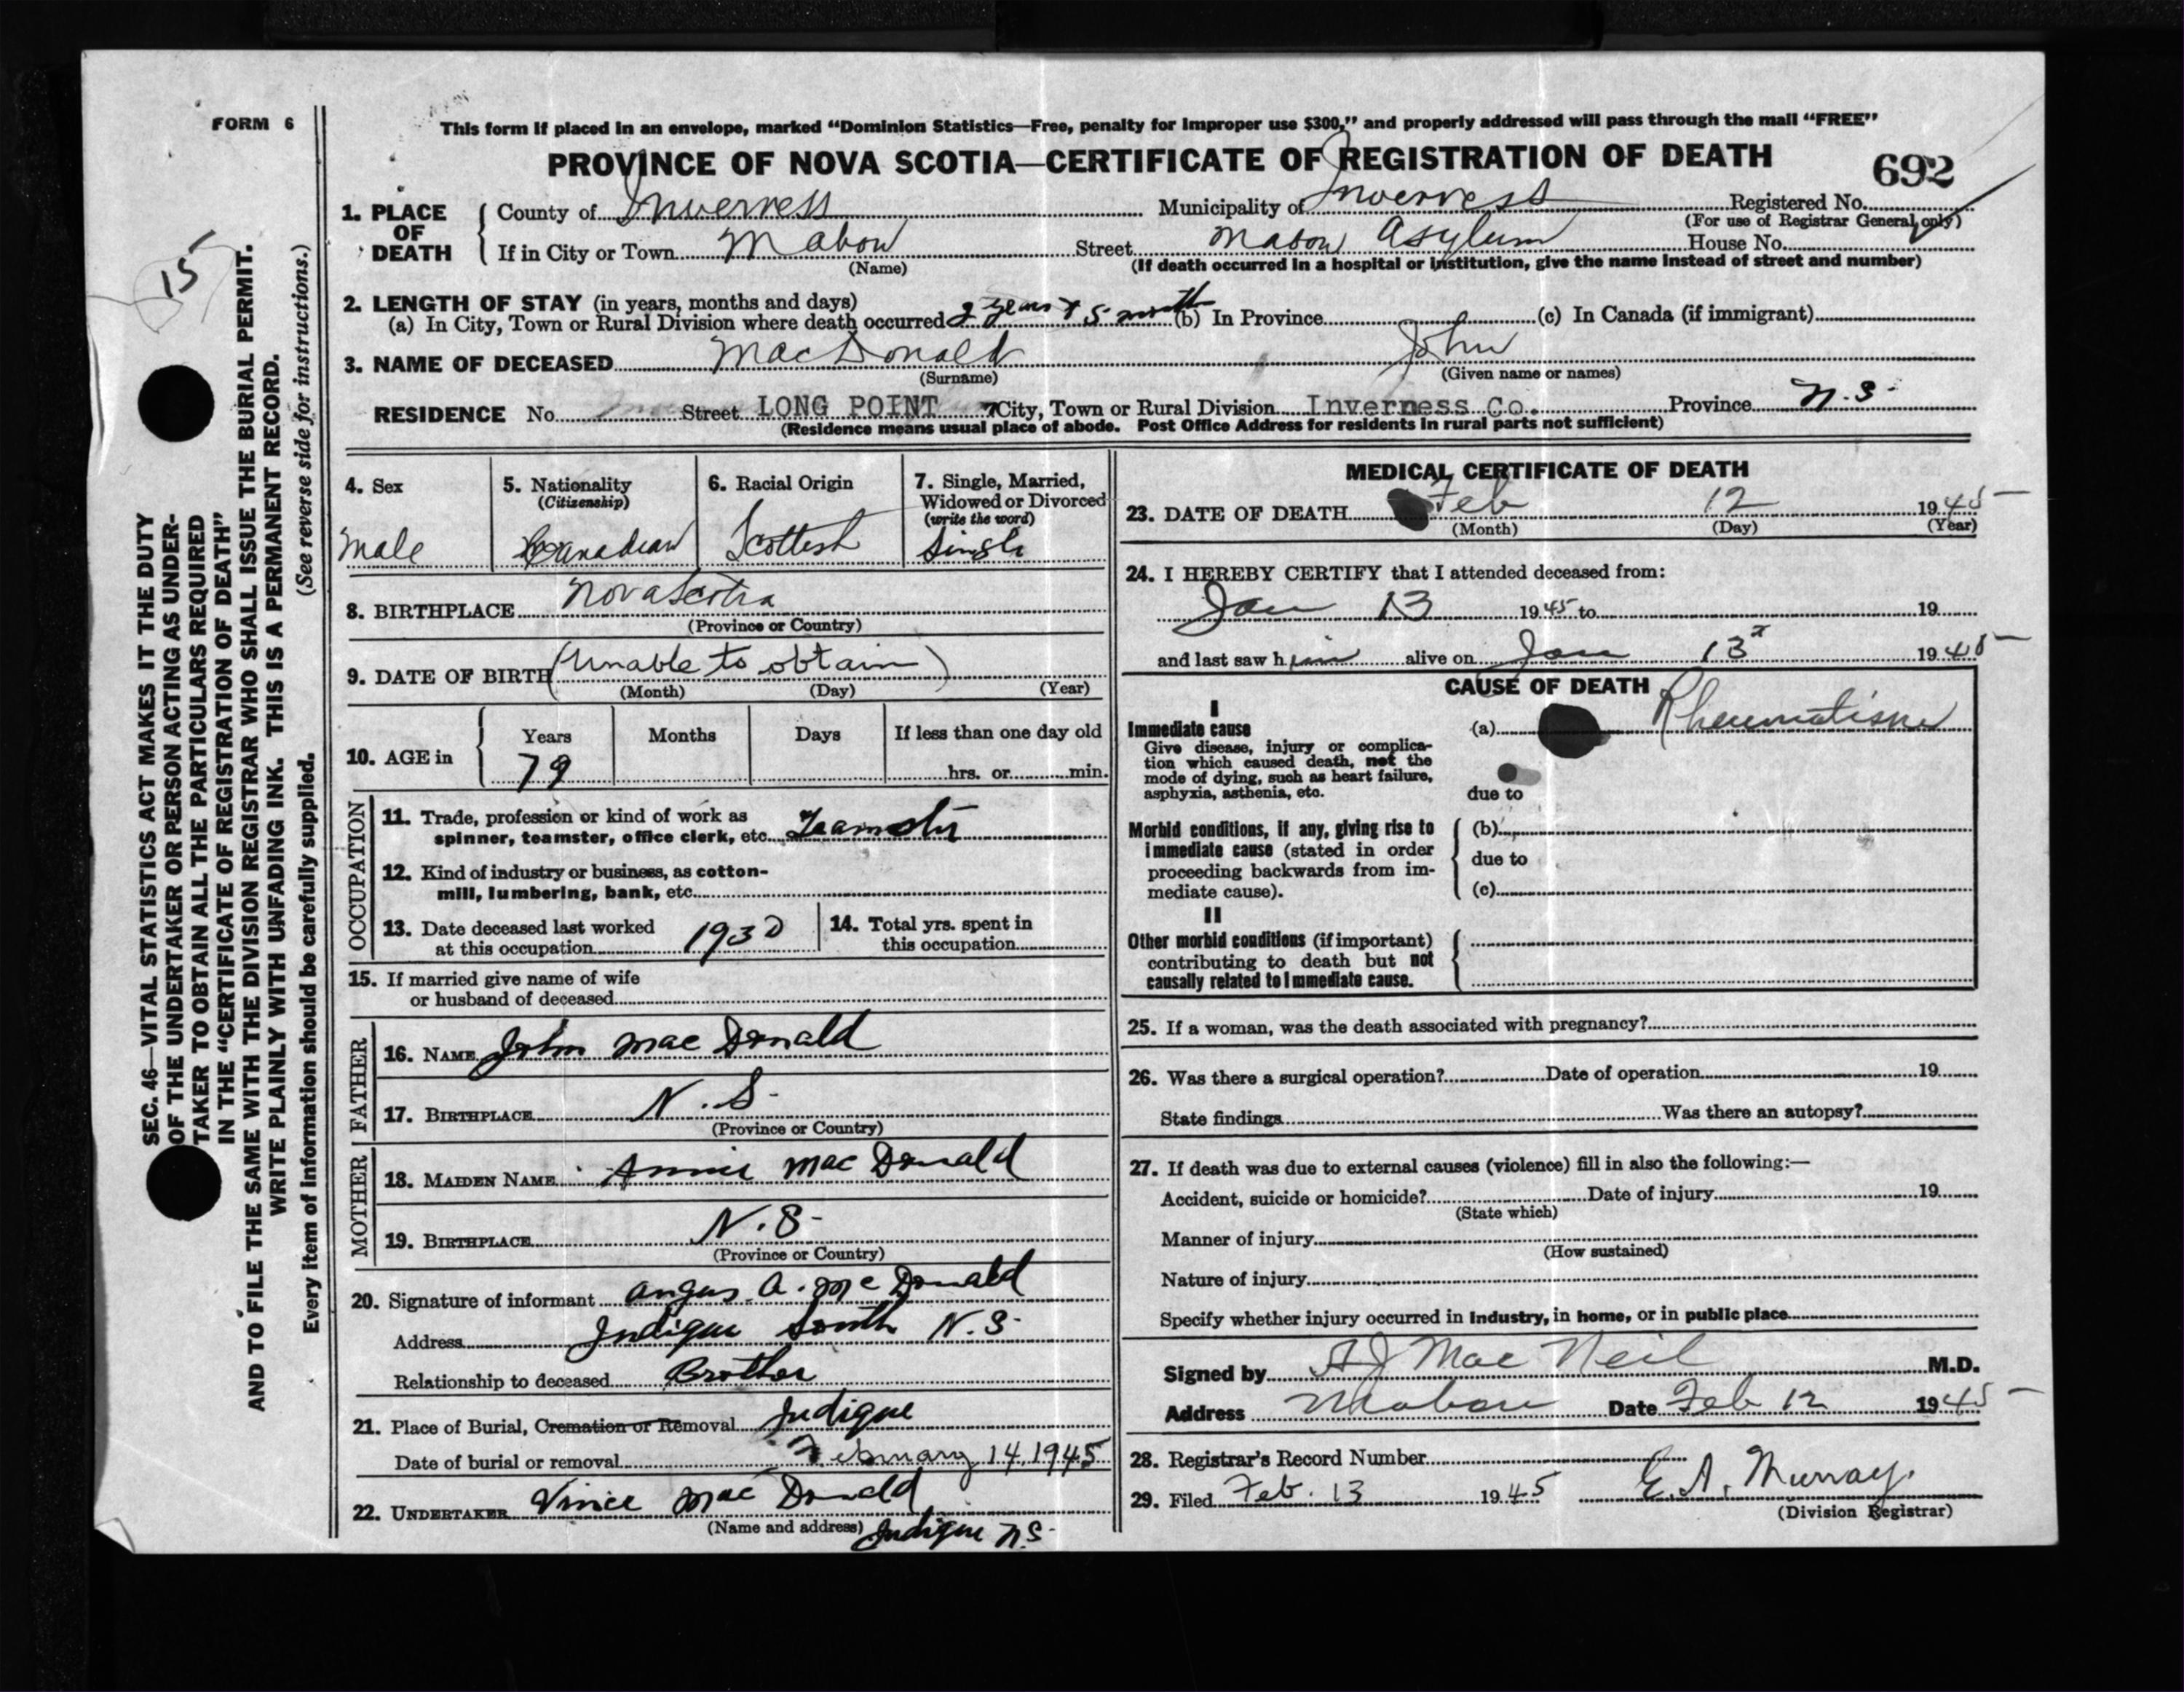 FORM 6
15
SEC. 46—VITAL STATISTICS ACT MAKES IT THE DUTY
OF THE UNDERTAKER OR PERSON ACTING AS UNDER-
TAKER TO OBTAIN ALL THE PARTICULARS REQUIRED
IN THE "CERTIFICATE OF REGISTRATION OF DEATH"
AND TO FILE THE SAME WITH THE DIVISION REGISTRAR WHO SHALL ISSUE THE BURIAL PERMIT.
WRITE PLAINLY WITH UNFADING INK. THIS IS A PERMANENT RECORD.
Every item of information should be carefully supplied. (See reverse side for instructions.)
This form if placed in an envelope, marked "Dominion Statistics—Free, penalty for improper use $300," and properly addressed will pass through the mail "FREE"
PROVINCE OF NOVA SCOTIA—CERTIFICATE OF REGISTRATION OF DEATH 692
1. PLACE OF DEATH
County of Inverness Municipality of Inverness Registered No.
(For use of Registrar General only)
If in City or Town Mabou Street Mabou Asylum House No.
(Name) (If death occurred in a hospital or institution, give the name instead of street and number)
2. LENGTH OF STAY (in years, months and days)
(a) In City, Town or Rural Division where death occurred 2 years & 5 month (b) In Province (c) In Canada (if immigrant)
3. NAME OF DECEASED MacDonald John
(Surname) (Given name or names)
RESIDENCE No. Street LONG POINT City, Town or Rural Division Inverness Co. Province N.S.
(Residence means usual place of abode. Post Office Address for residents in rural parts not sufficient)
4. Sex
Male
5. Nationality
(Citizenship)
Canadian
6. Racial Origin
Scottish
7. Single, Married,
Widowed or Divorced
(write the word)
Single
8. BIRTHPLACE Nova Scotia
(Province or Country)
9. DATE OF BIRTH (Unable to obtain)
(Month) (Day) (Year)
10. AGE in
Years Months Days If less than one day old
79 hrs. or min.
OCCUPATION
11. Trade, profession or kind of work as
spinner, teamster, office clerk, etc. Teamster
12. Kind of industry or business, as cotton-
mill, lumbering, bank, etc.
13. Date deceased last worked
at this occupation 1930
14. Total yrs. spent in
this occupation
15. If married give name of wife
or husband of deceased
FATHER
16. NAME John MacDonald
17. BIRTHPLACE N.S.
(Province or Country)
MOTHER
18. MAIDEN NAME Annie MacDonald
19. BIRTHPLACE N.S.
(Province or Country)
20. Signature of informant Angus A. McDonald
Address Judique South N.S.
Relationship to deceased Brother
21. Place of Burial, Cremation or Removal Judique
Date of burial or removal February 14, 1945
22. UNDERTAKER Vince MacDonald
(Name and address) Judique N.S.
MEDICAL CERTIFICATE OF DEATH
23. DATE OF DEATH Feb 12 1945
(Month) (Day) (Year)
24. I HEREBY CERTIFY that I attended deceased from:
Jan 13 1945 to 19
and last saw him alive on Jan 13 1945
CAUSE OF DEATH
I
Immediate cause
Give disease, injury or complica-
tion which caused death, not the
mode of dying, such as heart failure,
asphyxia, asthenia, etc.
(a) Rheumatism
due to
Morbid conditions, if any, giving rise to
immediate cause (stated in order
proceeding backwards from im-
mediate cause).
(b)
due to
(c)
II
Other morbid conditions (if important)
contributing to death but not
causally related to immediate cause.
25. If a woman, was the death associated with pregnancy?
26. Was there a surgical operation? Date of operation 19
State findings Was there an autopsy?
27. If death was due to external causes (violence) fill in also the following:—
Accident, suicide or homicide? Date of injury 19
(State which)
Manner of injury
(How sustained)
Nature of injury
Specify whether injury occurred in industry, in home, or in public place
Signed by A J MacNeil M.D.
Address Mabou Date Feb 12 1945
28. Registrar's Record Number
29. Filed Feb. 13 1945 E. A. Murray.
(Division Registrar)